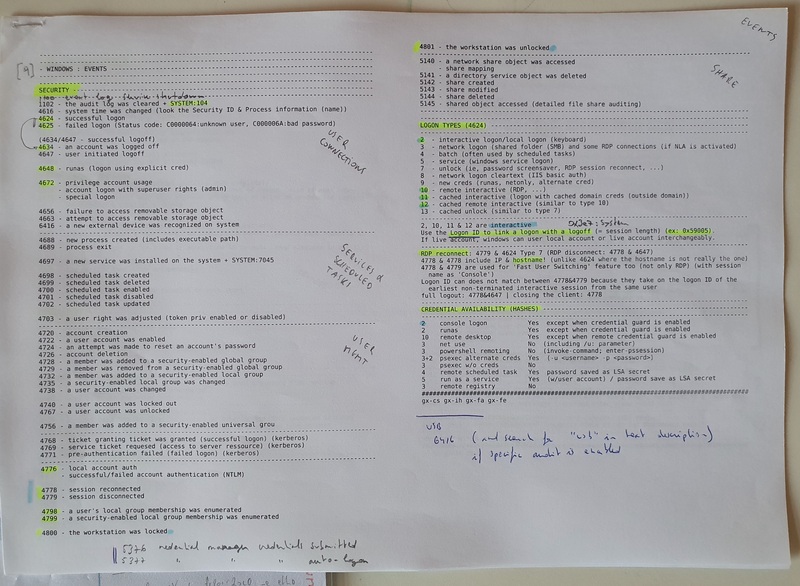 [9] - WINDOWS : EVENTS
SECURITY -
1100 event log service shutdown
1102 - the audit log was cleared + SYSTEM:104
4616 - system time was changed (look the Security ID & Process information (name))
4624 - successful logon
4625 - failed logon (Status code: C0000064:unknown user, C000006A:bad password)
(4634/4647 - successful logoff)
4634 - an account was logged off
4647 - user initiated logoff
USER CONNECTIONS
4648 - runas (logon using explicit cred)
4672 - privilege account usage
- account logon with superuser rights (admin)
- special logon
4656 - failure to access removable storage object
4663 - attempt to access removable storage object
6416 - a new external device was recognized on system
4688 - new process created (includes executable path)
4689 - process exit
4697 - a new service was installed on the system + SYSTEM:7045
SERVICES & SCHEDULED TASKS
4698 - scheduled task created
4699 - scheduled task deleted
4700 - scheduled task enabled
4701 - scheduled task disabled
4702 - scheduled task updated
4703 - a user right was adjusted (token priv enabled or disabled)
4720 - account creation
4722 - a user account was enabled
4724 - an attempt was made to reset an account's password
4726 - account deletion
4728 - a member was added to a security-enabled global group
4729 - a member was removed from a security-enabled global group
4732 - a member was added to a security-enabled local group
4735 - a security-enabled local group was changed
4738 - a user account was changed
USER MGMT
4740 - a user account was locked out
4767 - a user account was unlocked
4756 - a member was added to a security-enabled universal grou
4768 - ticket granting ticket was granted (successful logon) (kerberos)
4769 - service ticket requesed (access to server ressource) (kerberos)
4771 - pre-authentication failed (failed logon) (kerberos)
4776 - local account auth
- successful/failed account authentication (NTLM)
4778 - session reconnected
4779 - session disconnected
4798 - a user's local group membership was enumerated
4799 - a security-enabled local group membership was enumerated
4800 - the workstation was locked
5376 credential manager credentials submitted
5377 " " " autologon
EVENTS
4801 - the workstation was unlocked
5140 - a network share object was accessed
share mapping
5141 - a directory service object was deleted
5142 - share created
5143 - share modified
5144 - share deleted
5145 - shared object accessed (detailed file share auditing)
SHARE
LOGON TYPES (4624)
2 - interactive logon/local logon (keyboard)
3 - network logon (shared folder (SMB) and some RDP connections (if NLA is activated)
4 - batch (often used by scheduled tasks)
5 - service (windows service logon)
7 - unlock (ie, password screensaver, RDP session reconnect, ...)
8 - network logon cleartext (IIS basic auth)
9 - new creds (runas, netonly, alternate cred)
10 - remote interactive (RDP, ...)
11 - cached interactive (logon with cached domain creds (outside domain))
12 - cached remote interactive (similar to type 10)
13 - cached unlock (similar to type 7)
2, 10, 11 & 12 are interactive
0x3e7: System
Use the Logon ID to link a logon with a logoff (= session length) (ex: 0x59005).
If live account, windows can user local account or live account interchangeably.
RDP reconnect: 4779 & 4624 Type 7 (RDP disconnect: 4778 & 4647)
4778 & 4778 include IP & hostname! (unlike 4624 where the hostname is not really the one)
4778 & 4779 are used for 'Fast User Switching' feature too (not only RDP) (with session
name as 'Console')
Logon ID can does not match between 4778&4779 because they take on the logon ID of the
earliest non-terminated interactive session from the same user
full logout: 4778&4647 | closing the client: 4778
CREDENTIAL AVAILABILITY (HASHES)
2 console logon Yes except when credential guard is enabled
2 runas Yes except when credential guard is enabled
10 remote desktop Yes except when remote credential guard is enabled
3 net use No (including /u: parameter)
3 powershell remoting No (invoke-command; enter-pssession)
3+2 psexec alternate creds Yes ( -u <username> -p <password>)
3 psexec w/o creds No
4 remote scheduled task Yes password saved as LSA secret
5 run as a service Yes (w/user account) / password save as LSA secret
3 remote registry No
gx-cs gx-ih gx-fa gx-fe
USB
6416 (and search for "usb" in text description)
if specific audit is enabled